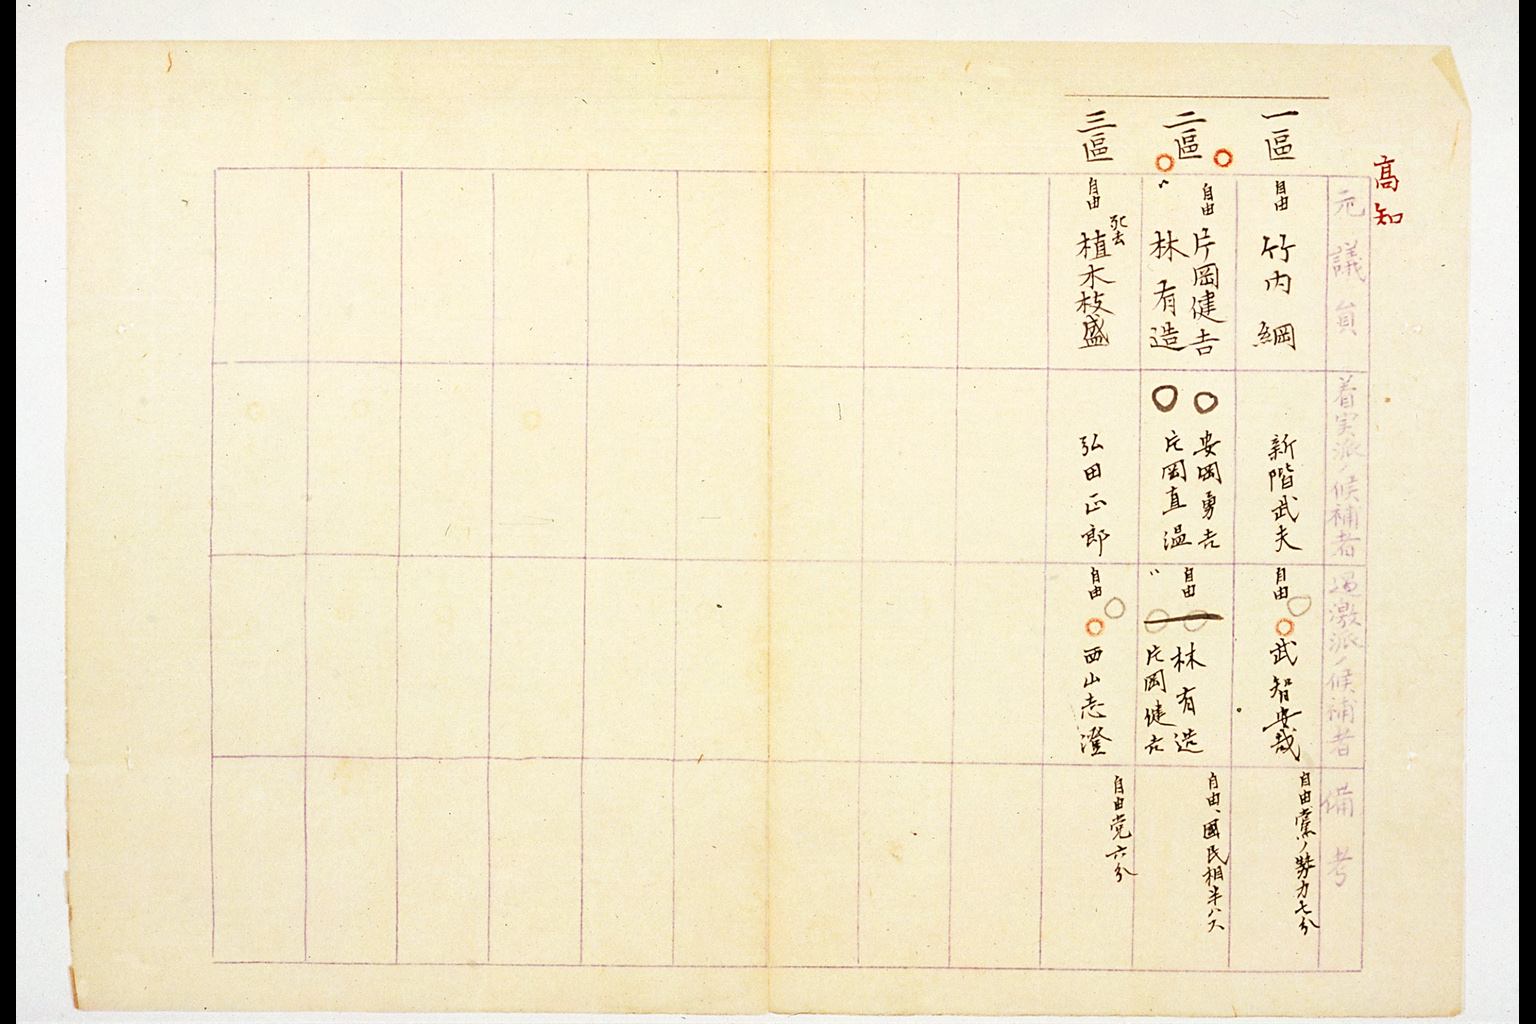 高知
元議員
着実派ノ候補者
過激派ノ候補者
備考
一區
自由 竹内綱
新階武夫
自由 武智安哉
自由黨ノ勢力七分
二區
自由 片岡健吉
〃 林有造
安岡勇吉
片岡直温
自由 林有造
〃 片岡健吉
自由、國民相半ハス
三區
自由 死去 植木枝盛
弘田正郎
自由 西山志澄
自由党六分